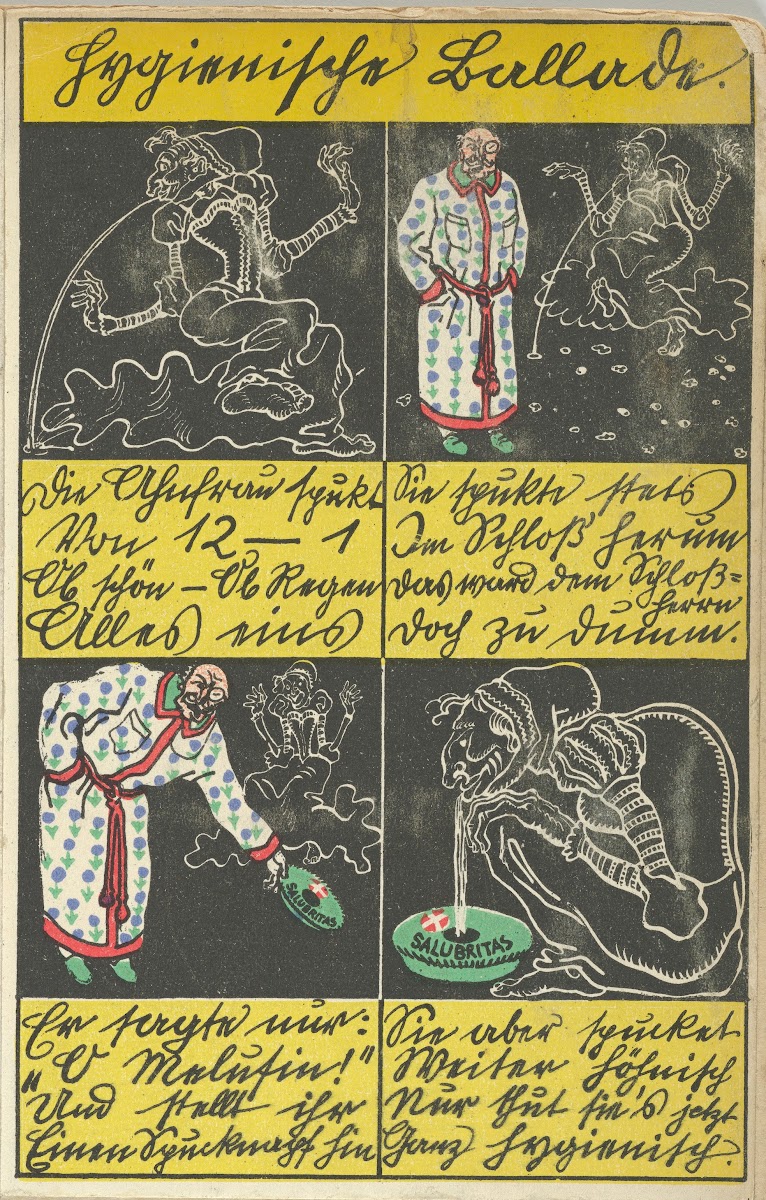 Hygienische Ballade.
Die Ahnfrau spukt
Von 12 — 1
Ob schön – Ob Regen
Alles eins
Sie spukte stets
Im Schloß herum
Das ward dem Schloß=
herrn
Doch zu dumm.
SALUBRITAS
SALUBRITAS
Er sagte nur:
„O Melusin!"
Und stellt ihr
Einen Spucknapf hin
Sie aber spucket
Weiter höhnisch
Nur thut sie's jetzt
Ganz hygienisch.